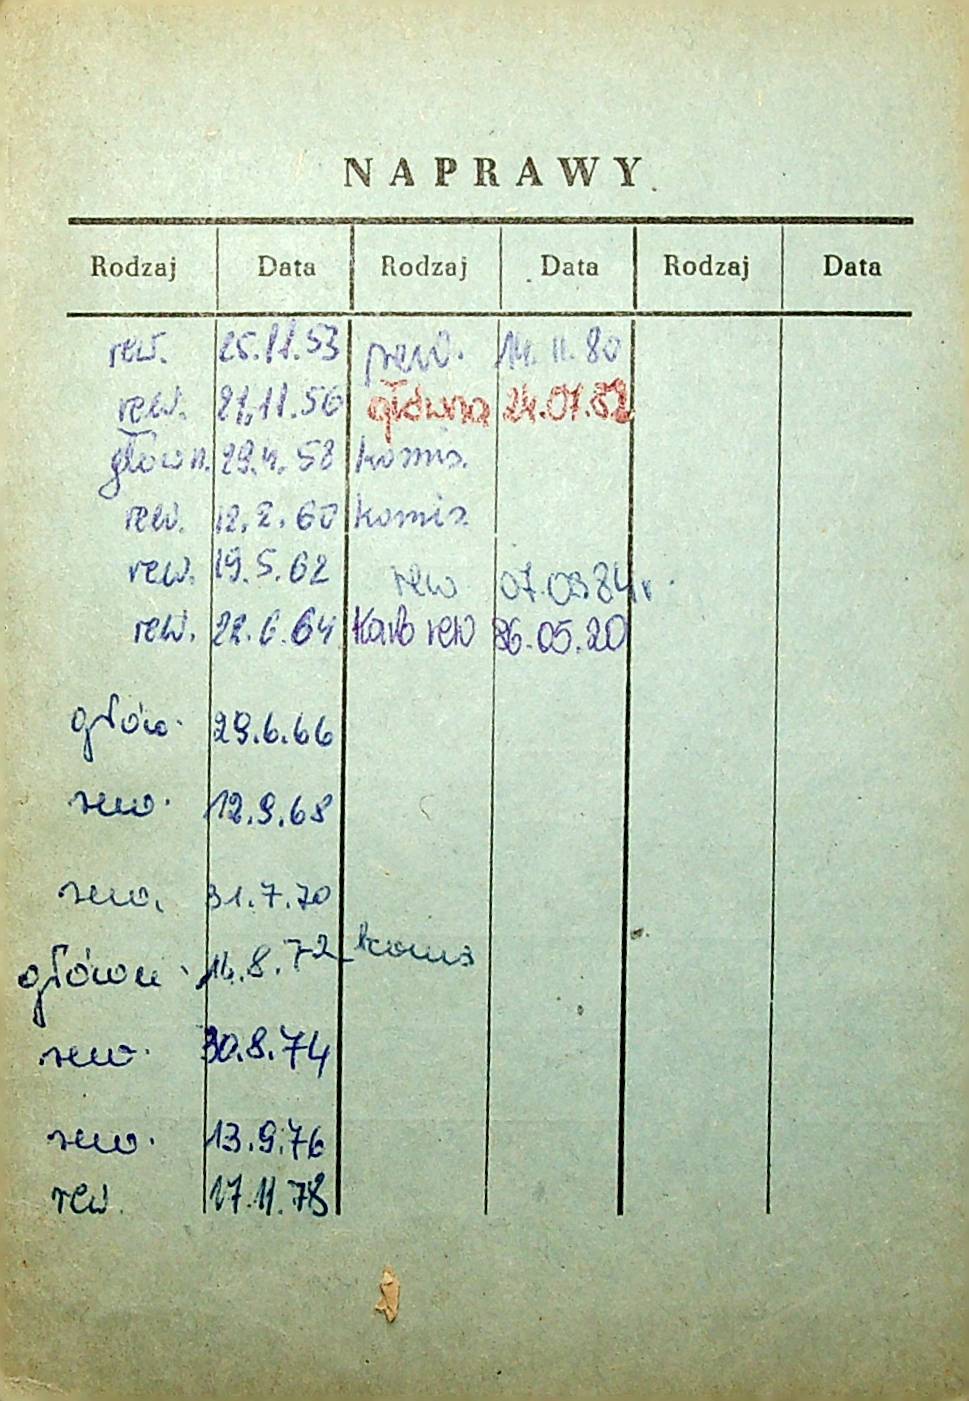 NAPRAWY
Rodzaj Data Rodzaj Data Rodzaj Data
rew. 25.11.53 rew. 14.11.80
rew. 21.11.56 główna 24.07.82
główn. 29.4.58 komis.
rew. 12.2.60 komis.
rew. 19.5.62 rew 07.09.84r.
rew. 22.6.64 rew 86.05.20
głów. 29.6.66
rew. 12.9.68
rew. 31.7.70
główn. 14.8.72 koms
rew. 30.8.74
rew. 13.9.76
rew. 17.11.78